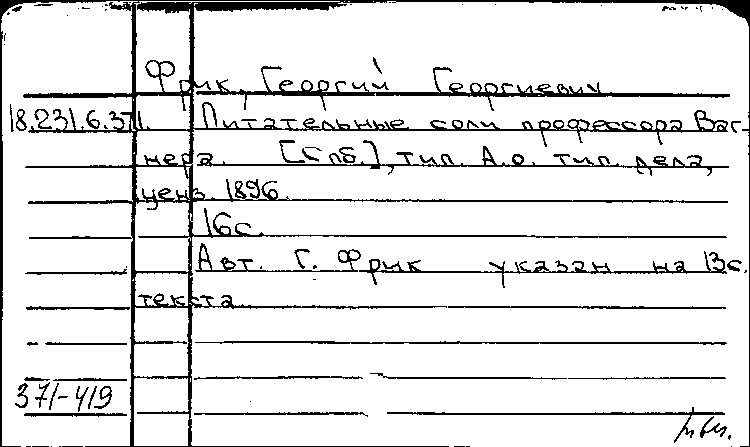 Фрик, Георгий Георгиевич
18.231.6.371. Питательные соли профессора Ваг-
нера. [Спб.], тип. А.о. тип. дела,
ценз. 1896.
16с.
Авт. Г. Фрик указан на 13с.
текста
371-419